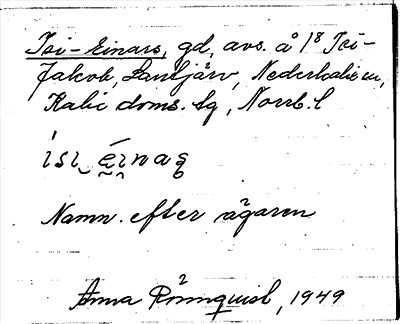 Isi-Einars, gd, avs. å 1⁸ Isi-
Jakob, Lantjärv, Nederkalix sn,
Kalix doms. sg, Norrb. l
ísi éinas
Namn. efter ägaren
Anna Rönnquist, 1949